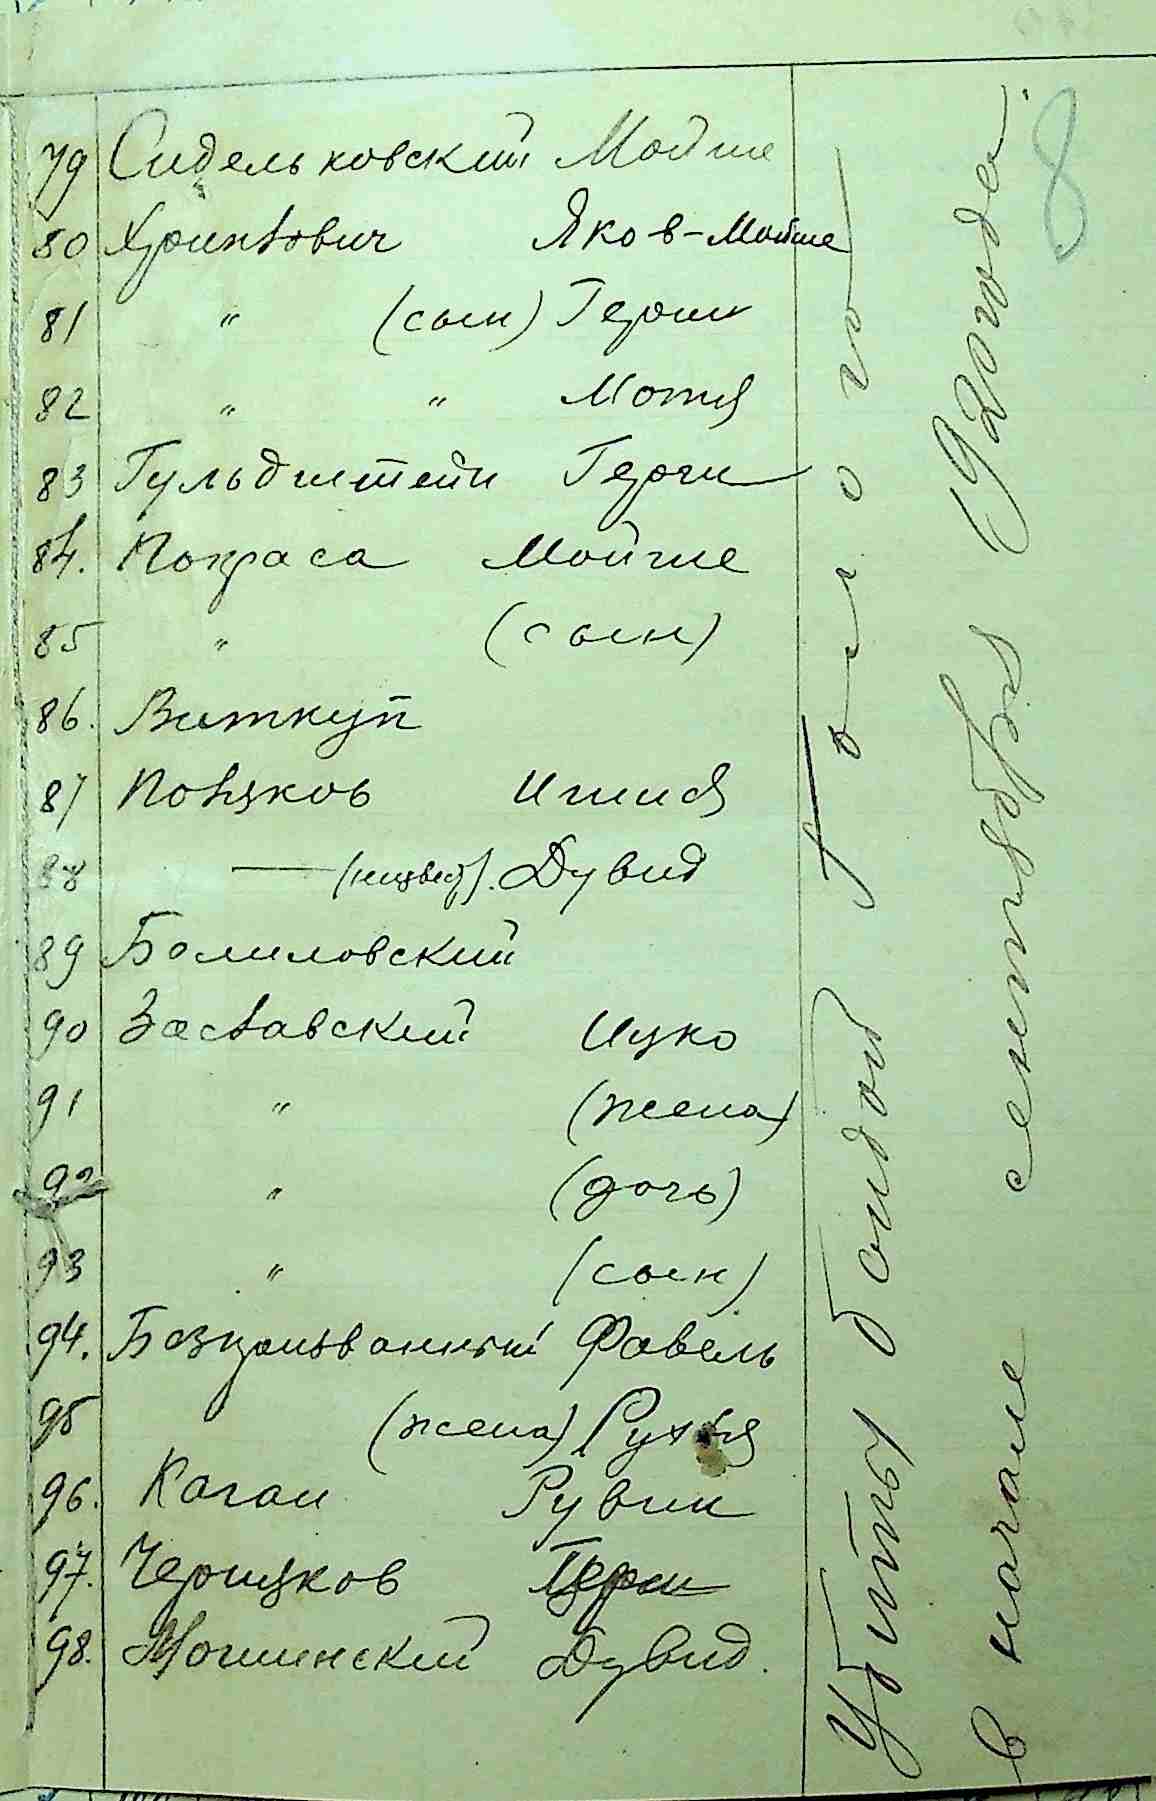 8
79 Сидельковский Мойше
80 Яков-Мойше
81 " (сын) Герш
82 " " Мотя
83 Гульдштейн Герш
84. Покраса Мойше
85 " (сын)
86. Виткуп
87 Поляков
88 — (неизвест). Дувид
89
90 Заславский Ицко
91 " (жена)
92 " (дочь)
93 " (сын)
94. Безпрозванный Фавель
95 (жена) Рухля
96. Каган Рувин
97. Черняков Герш
98. Мошинский Дувид.
Убиты бандой Голого
в начале сентября 1920 года.